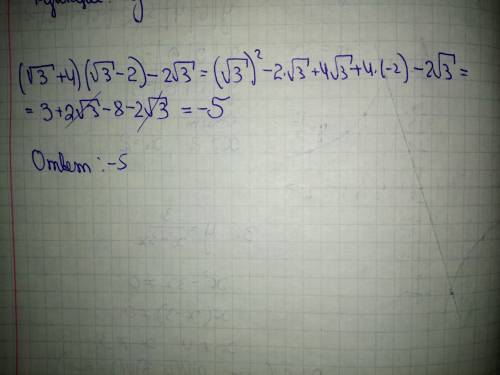 (√3 + 4)(√3 - 2) - 2√3 = (√3)² - 2·√3 + 4√3 + 4·(-2) - 2√3 =
= 3 + 2√3 - 8 - 2√3 = -5
Ответ: -5